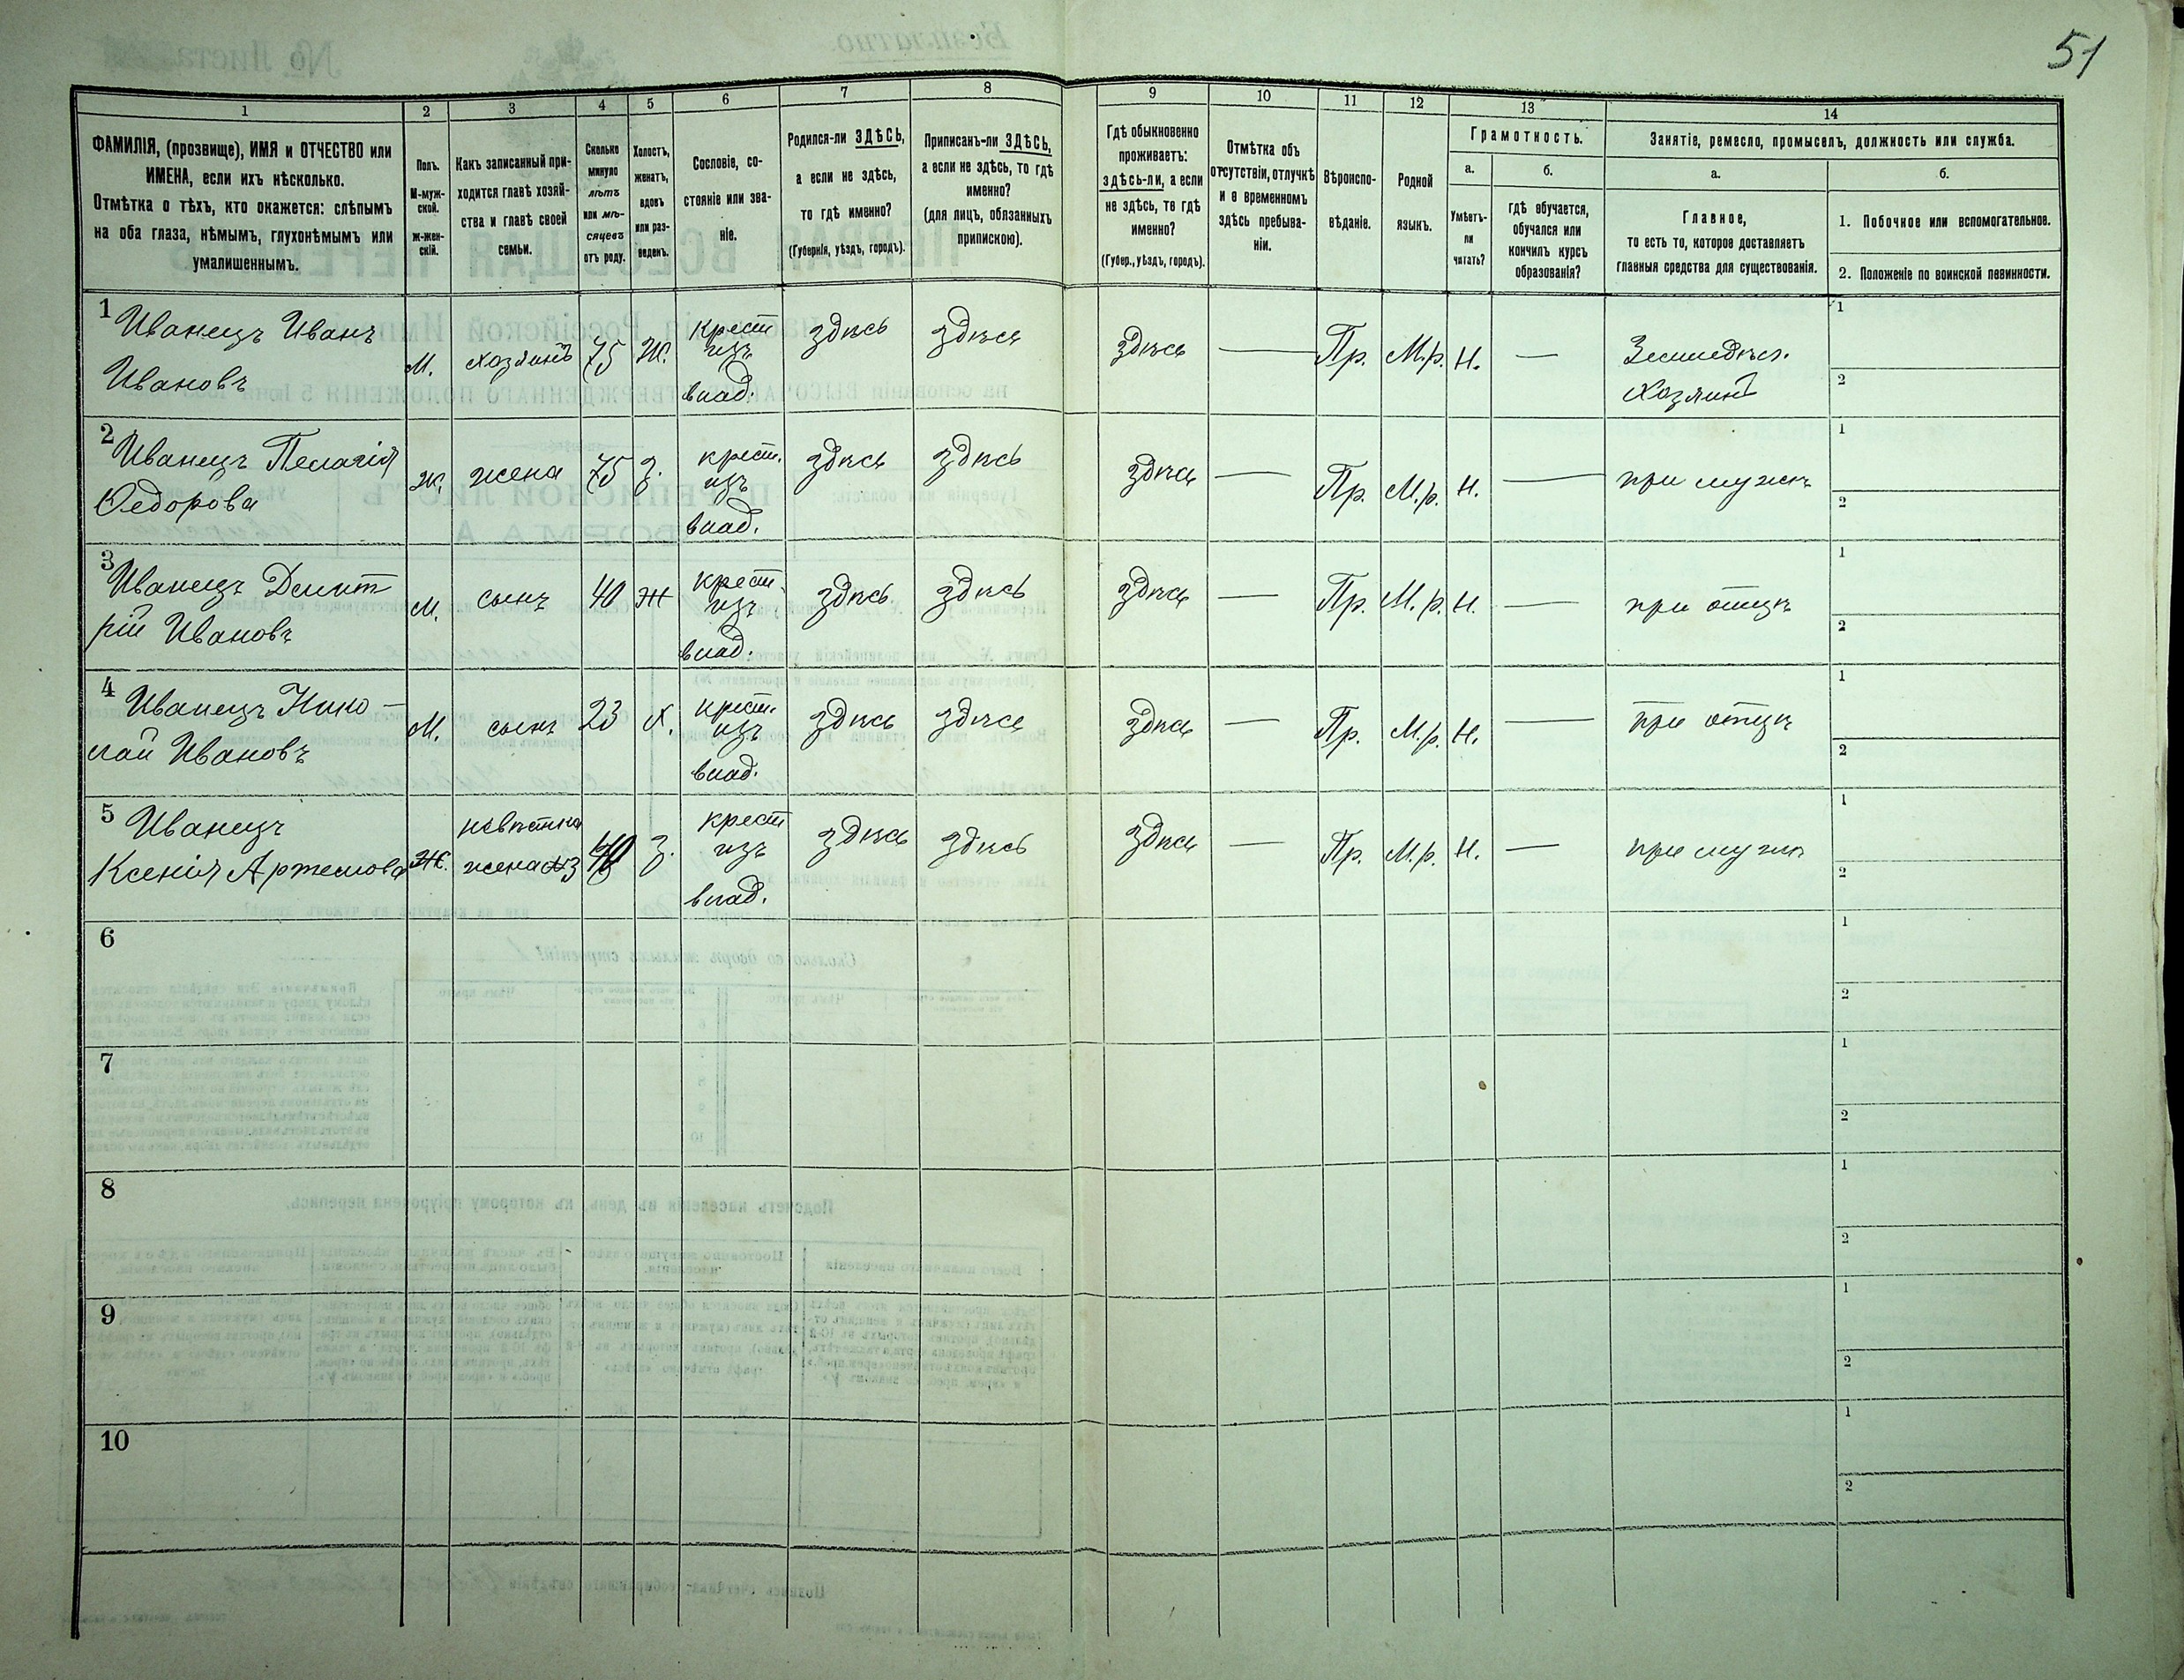 51
1 2 3 4 5 6 7 8 9 10 11 12 13 14
ФАМИЛІЯ, (прозвище), ИМЯ и ОТЧЕСТВО или
ИМЕНА, если ихъ нѣсколько.
Отмѣтка о тѣхъ, кто окажется: слѣпымъ
на оба глаза, нѣмымъ, глухонѣмымъ или
умалишеннымъ.
Полъ.
М-муж-
ской.
Ж-жен-
скій.
Какъ записанный при-
ходится главѣ хозяй-
ства и главѣ своей
семьи.
Сколько
минуло
лѣтъ
или мѣ-
сяцевъ
отъ роду.
Холостъ,
женатъ,
вдовъ
или раз-
веденъ.
Сословіе, со-
стояніе или зва-
ніе.
Родился-ли ЗДѢСЬ,
а если не здѣсь,
то гдѣ именно?
(Губернія, уѣздъ, городъ).
Приписанъ-ли ЗДѢСЬ,
а если не здѣсь, то гдѣ
именно?
(для лицъ, обязанныхъ
припискою).
Гдѣ обыкновенно
проживаетъ:
здѣсь-ли, а если
не здѣсь, то гдѣ
именно?
(Губер., уѣздъ, городъ).
Отмѣтка объ
отсутствіи, отлучкѣ
и о временномъ
здѣсь пребыва-
ніи.
Вѣроиспо-
вѣданіе.
Родной
языкъ.
Грамотность.
а.
Умѣетъ-
ли
читать?
б.
гдѣ обучается,
обучался или
кончилъ курсъ
образованія?
Занятіе, ремесло, промыселъ, должность или служба.
а.
Главное,
то есть то, которое доставляетъ
главныя средства для существованія.
б.
1. Побочное или вспомогательное.
2. Положеніе по воинской повинности.
1 Иванецъ Иванъ
Ивановъ
М. хозяинъ 75 Ж. крест
изъ
влад.
здѣсь здѣсь здѣсь — Пр. М.р. Н. — Земледѣл.
Хозяинъ
1
2
2 Иванецъ Пелагія
Ѳедорова
Ж. жена 75 З. крест.
изъ
влад.
здѣсь здѣсь здѣсь — Пр. М.р. Н. — при мужѣ
1
2
3 Иванецъ Дмит
рій Ивановъ
М. сынъ 40 Ж крест.
изъ
влад.
здѣсь здѣсь здѣсь — Пр. М.р. Н. — при отцѣ
1
2
4 Иванецъ Нико-
лай Ивановъ
М. сынъ 23 Х. крест.
изъ
влад.
здѣсь здѣсь здѣсь — Пр. М.р. Н. — при отцѣ
1
2
5 Иванецъ
Ксенія Артемова
Ж. невѣстка
жена №3
З. крест
изъ
влад.
здѣсь здѣсь здѣсь — Пр. М.р. Н. — при мужѣ
1
2
6
1
2
7
1
2
8
1
2
9
1
2
10
1
2